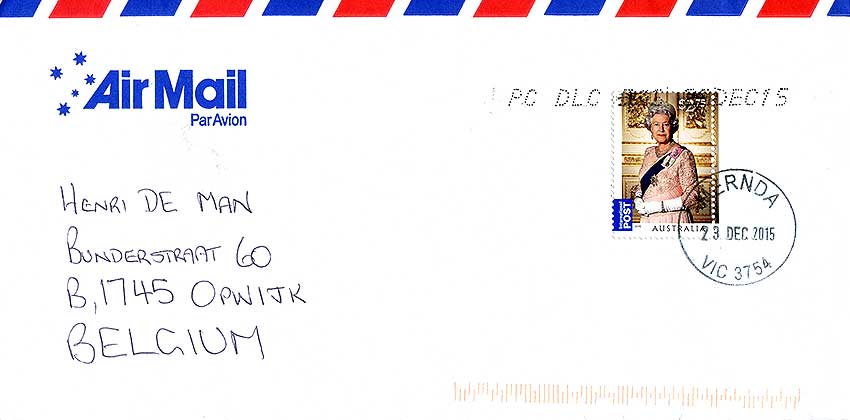 Air Mail
Par Avion
PC DLC DEC15
International
POST
AUSTRALIA
ERNDA
23 DEC 2015
VIC 3754
HENRI DE MAN
BUNDERSTRAAT 60
B,1745 OPWIJK
BELGIUM